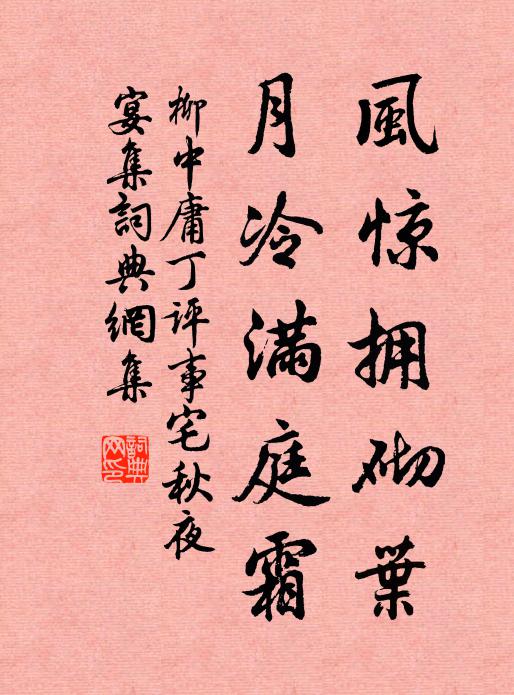 風惊拥砌葉
月冷满庭霜
柳中庸丁评事宅秋夜
宴集詞典網集
詞典网印